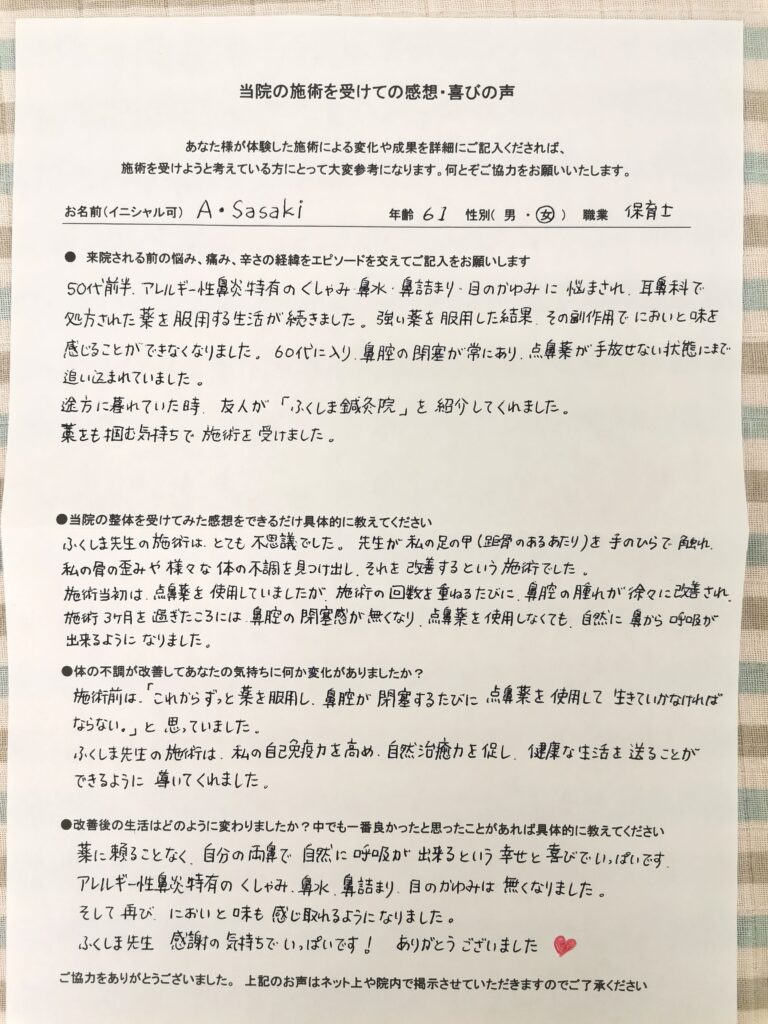 当院の施術を受けての感想・喜びの声
あなた様が体験した施術による変化や成果を詳細にご記入くだされば、
施術を受けようと考えている方にとって大変参考になります。何とぞご協力をお願いいたします。
お名前(イニシャル可) A・Sasaki 年齢 61 性別( 男 ・ 女 ) 職業 保育士
● 来院される前の悩み、痛み、辛さの経緯をエピソードを交えてご記入をお願いします
50代前半、アレルギー性鼻炎特有のくしゃみ・鼻水・鼻詰まり・目のかゆみに悩まされ、耳鼻科で
処方された薬を服用する生活が続きました。強い薬を服用した結果、その副作用でにおいと味を
感じることができなくなりました。60代に入り、鼻腔の閉塞が常にあり、点鼻薬が手放せない状態にまで
追い込まれていました。
途方に暮れていた時、友人が「ふくしま鍼灸院」を紹介してくれました。
藁をも掴む気持ちで施術を受けました。
●当院の整体を受けてみた感想をできるだけ具体的に教えてください
ふくしま先生の施術は、とても不思議でした。先生が私の足の甲(距骨のあるあたり)を手のひらで触れ、
私の骨の歪みや様々な体の不調を見つけ出し、それを改善するという施術でした。
施術当初は、点鼻薬を使用していましたが、施術の回数を重ねるたびに、鼻腔の腫れが徐々に改善され、
施術3ヶ月を過ぎたころには、鼻腔の閉塞感が無くなり、点鼻薬を使用しなくても、自然に鼻から呼吸が
出来るようになりました。
●体の不調が改善してあなたの気持ちに何か変化がありましたか?
施術前は、「これからずっと薬を服用し、鼻腔が閉塞するたびに点鼻薬を使用して生きていかなければ
ならない。」と思っていました。
ふくしま先生の施術は、私の自己免疫力を高め、自然治癒力を促し、健康な生活を送ることが
できるように導いてくれました。
●改善後の生活はどのように変わりましたか?中でも一番良かったと思ったことがあれば具体的に教えてください
薬に頼ることなく、自分の両鼻で自然に呼吸が出来るという幸せと喜びでいっぱいです。
アレルギー性鼻炎特有のくしゃみ、鼻水、鼻詰まり、目のかゆみは無くなりました。
そして再び、においと味も感じ取れるようになりました。
ふくしま先生 感謝の気持ちでいっぱいです! ありがとうございました ♥
ご協力をありがとうございました。 上記のお声はネット上や院内で掲示させていただきますのでご了承ください